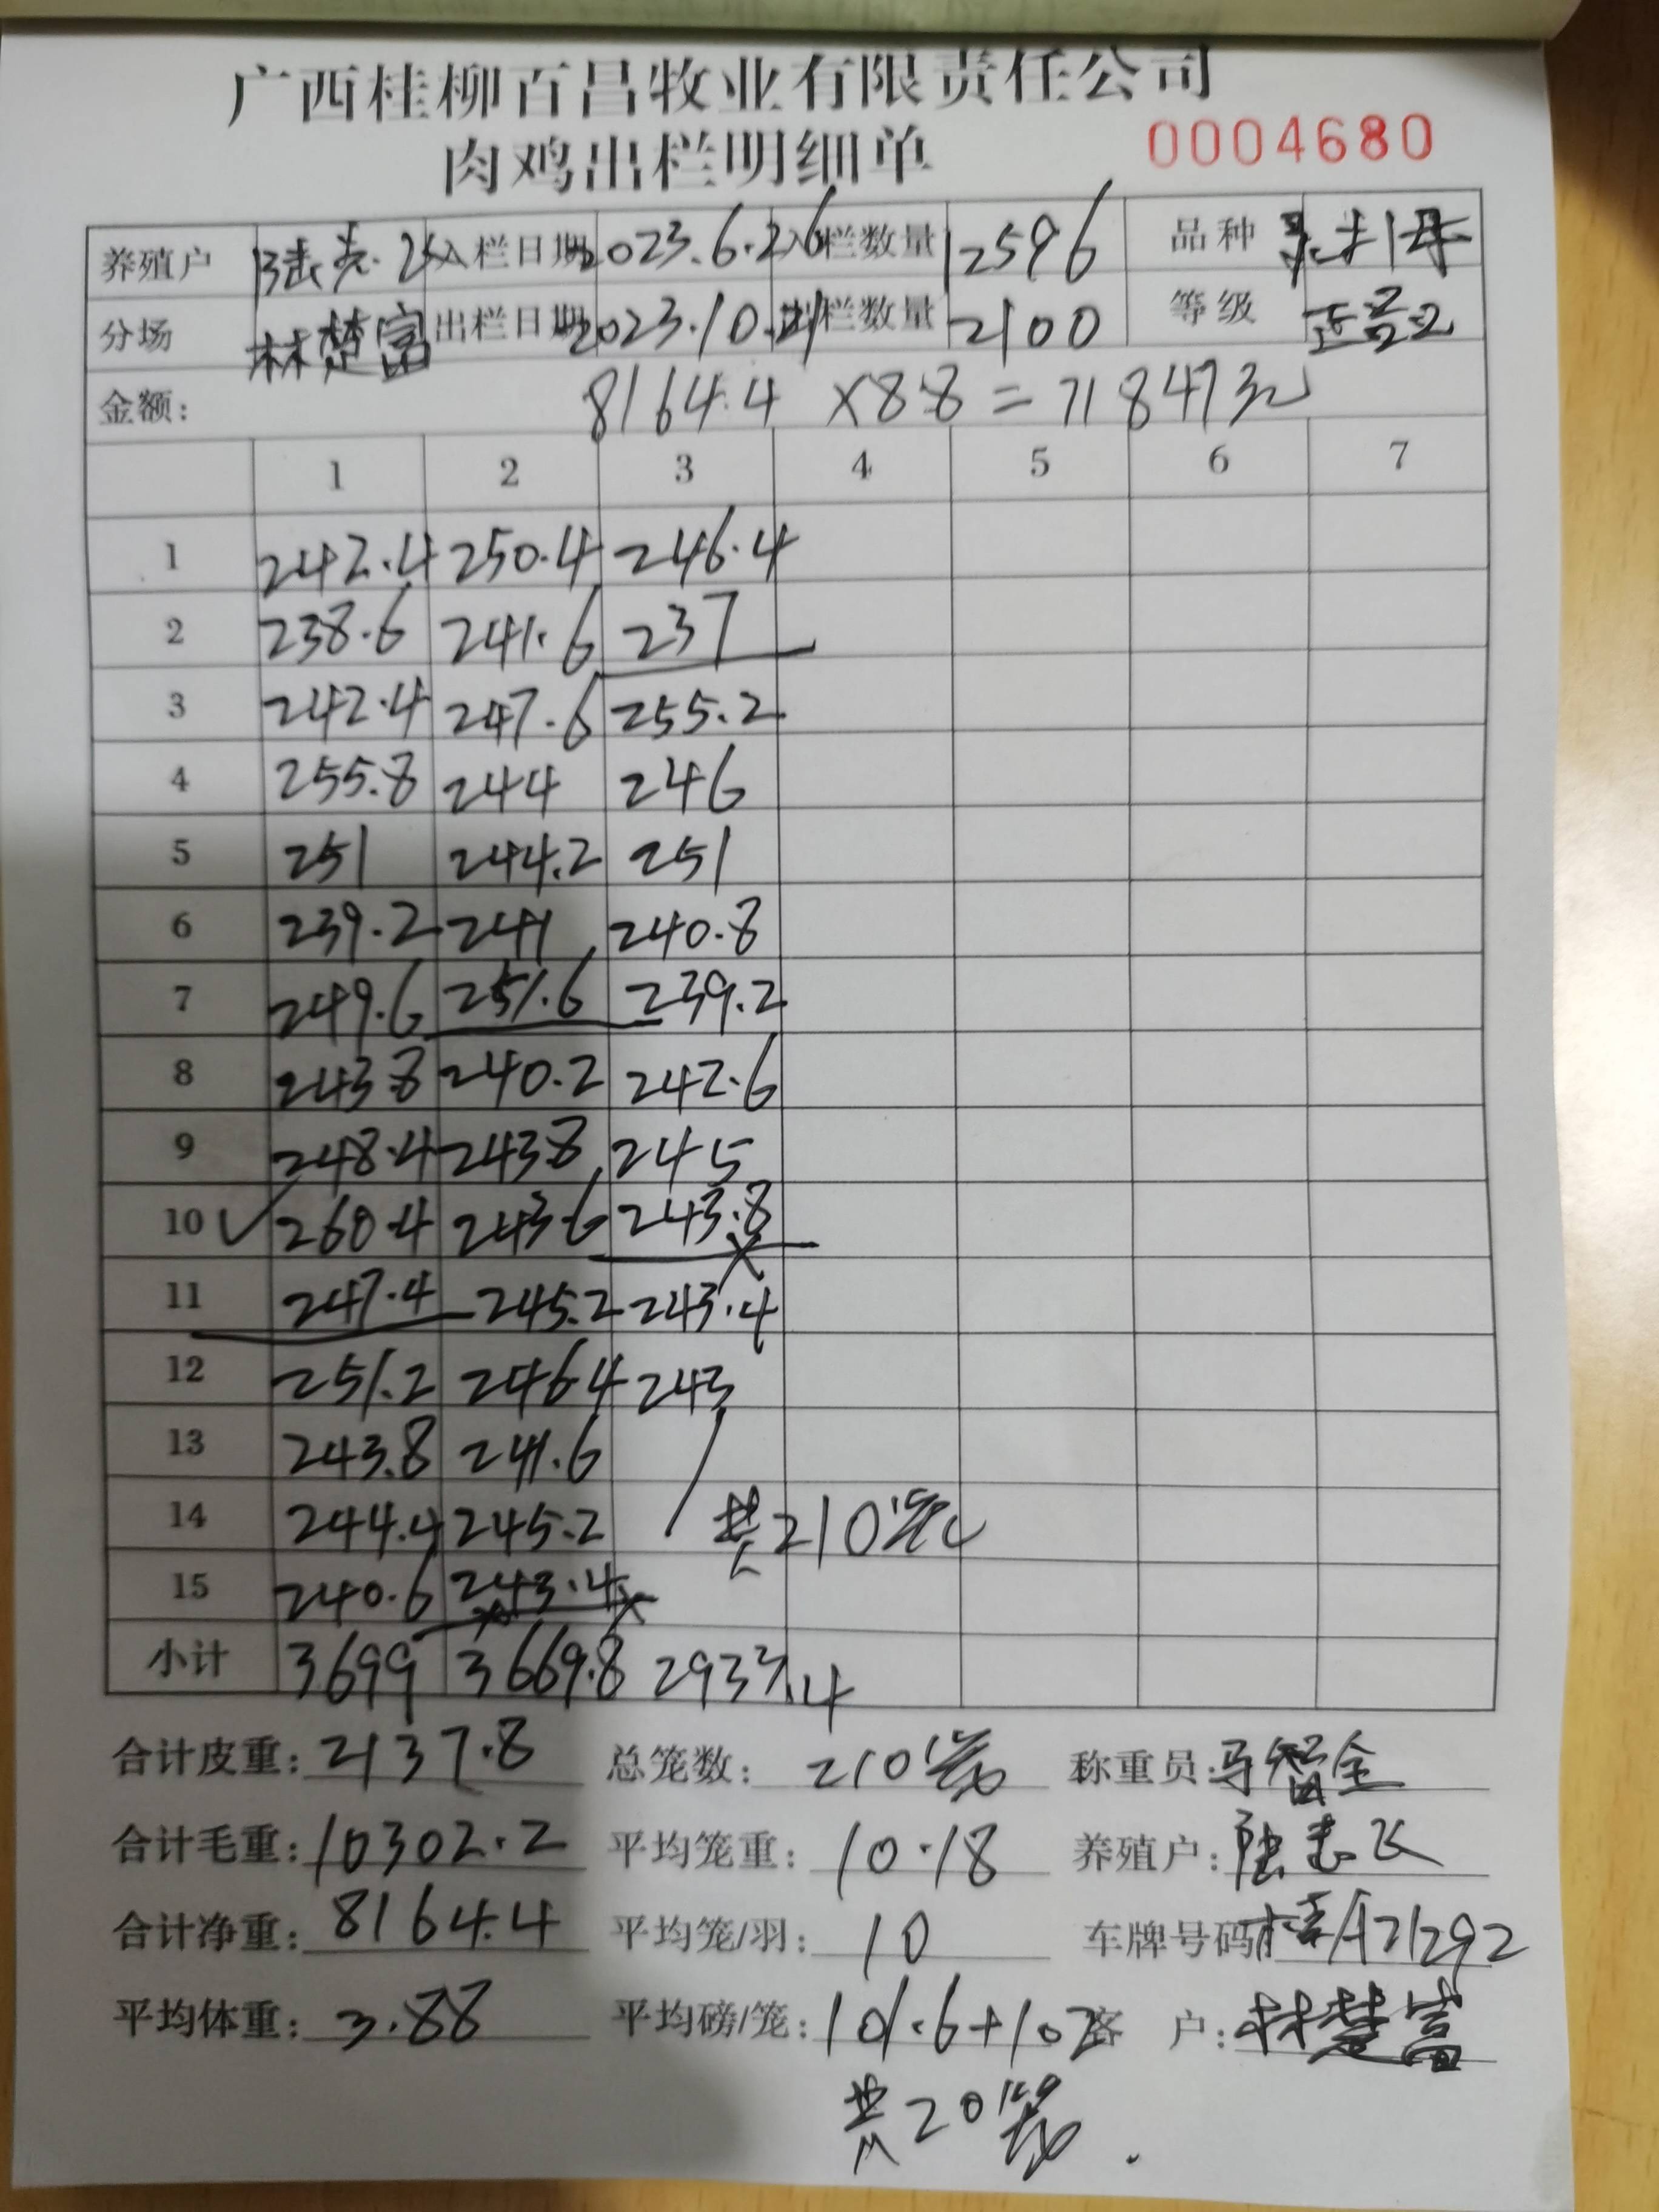 广西桂柳百昌牧业有限责任公司
肉鸡出栏明细单 0004680
养殖户 入栏日期 2023.6.26 入栏数量 12596 品种
分场 林楚富 出栏日期 2023.10.21 出栏数量 2100 等级
金额: 8164.4 ×8.8=71847元
1 2 3 4 5 6 7
1 242.4 250.4 246.4
2 238.6 241.6 237
3 242.4 247.6 255.2
4 255.8 244 246
5 251 244.2 251
6 239.2 241 240.8
7 249.6 251.6 239.2
8 243.8 240.2 242.6
9 248.4 243.8 245
10 ✓ 260.4 243.6 243.8
11 247.4 245.2 243.4
12 251.2 246.4 243
13 243.8 241.6
14 244.4 245.2 共210笼
15 240.6 243.4
小计 3699 3669.8 2933.4
合计皮重: 2137.8 总笼数: 210笼 称重员: 马智全
合计毛重: 10302.2 平均笼重: 10.18 养殖户: 陆志飞
合计净重: 8164.4 平均笼/羽: 10 车牌号码 桂A21292
平均体重: 3.88 平均磅/笼: 101.6+102 客户: 林楚富
共20笼.